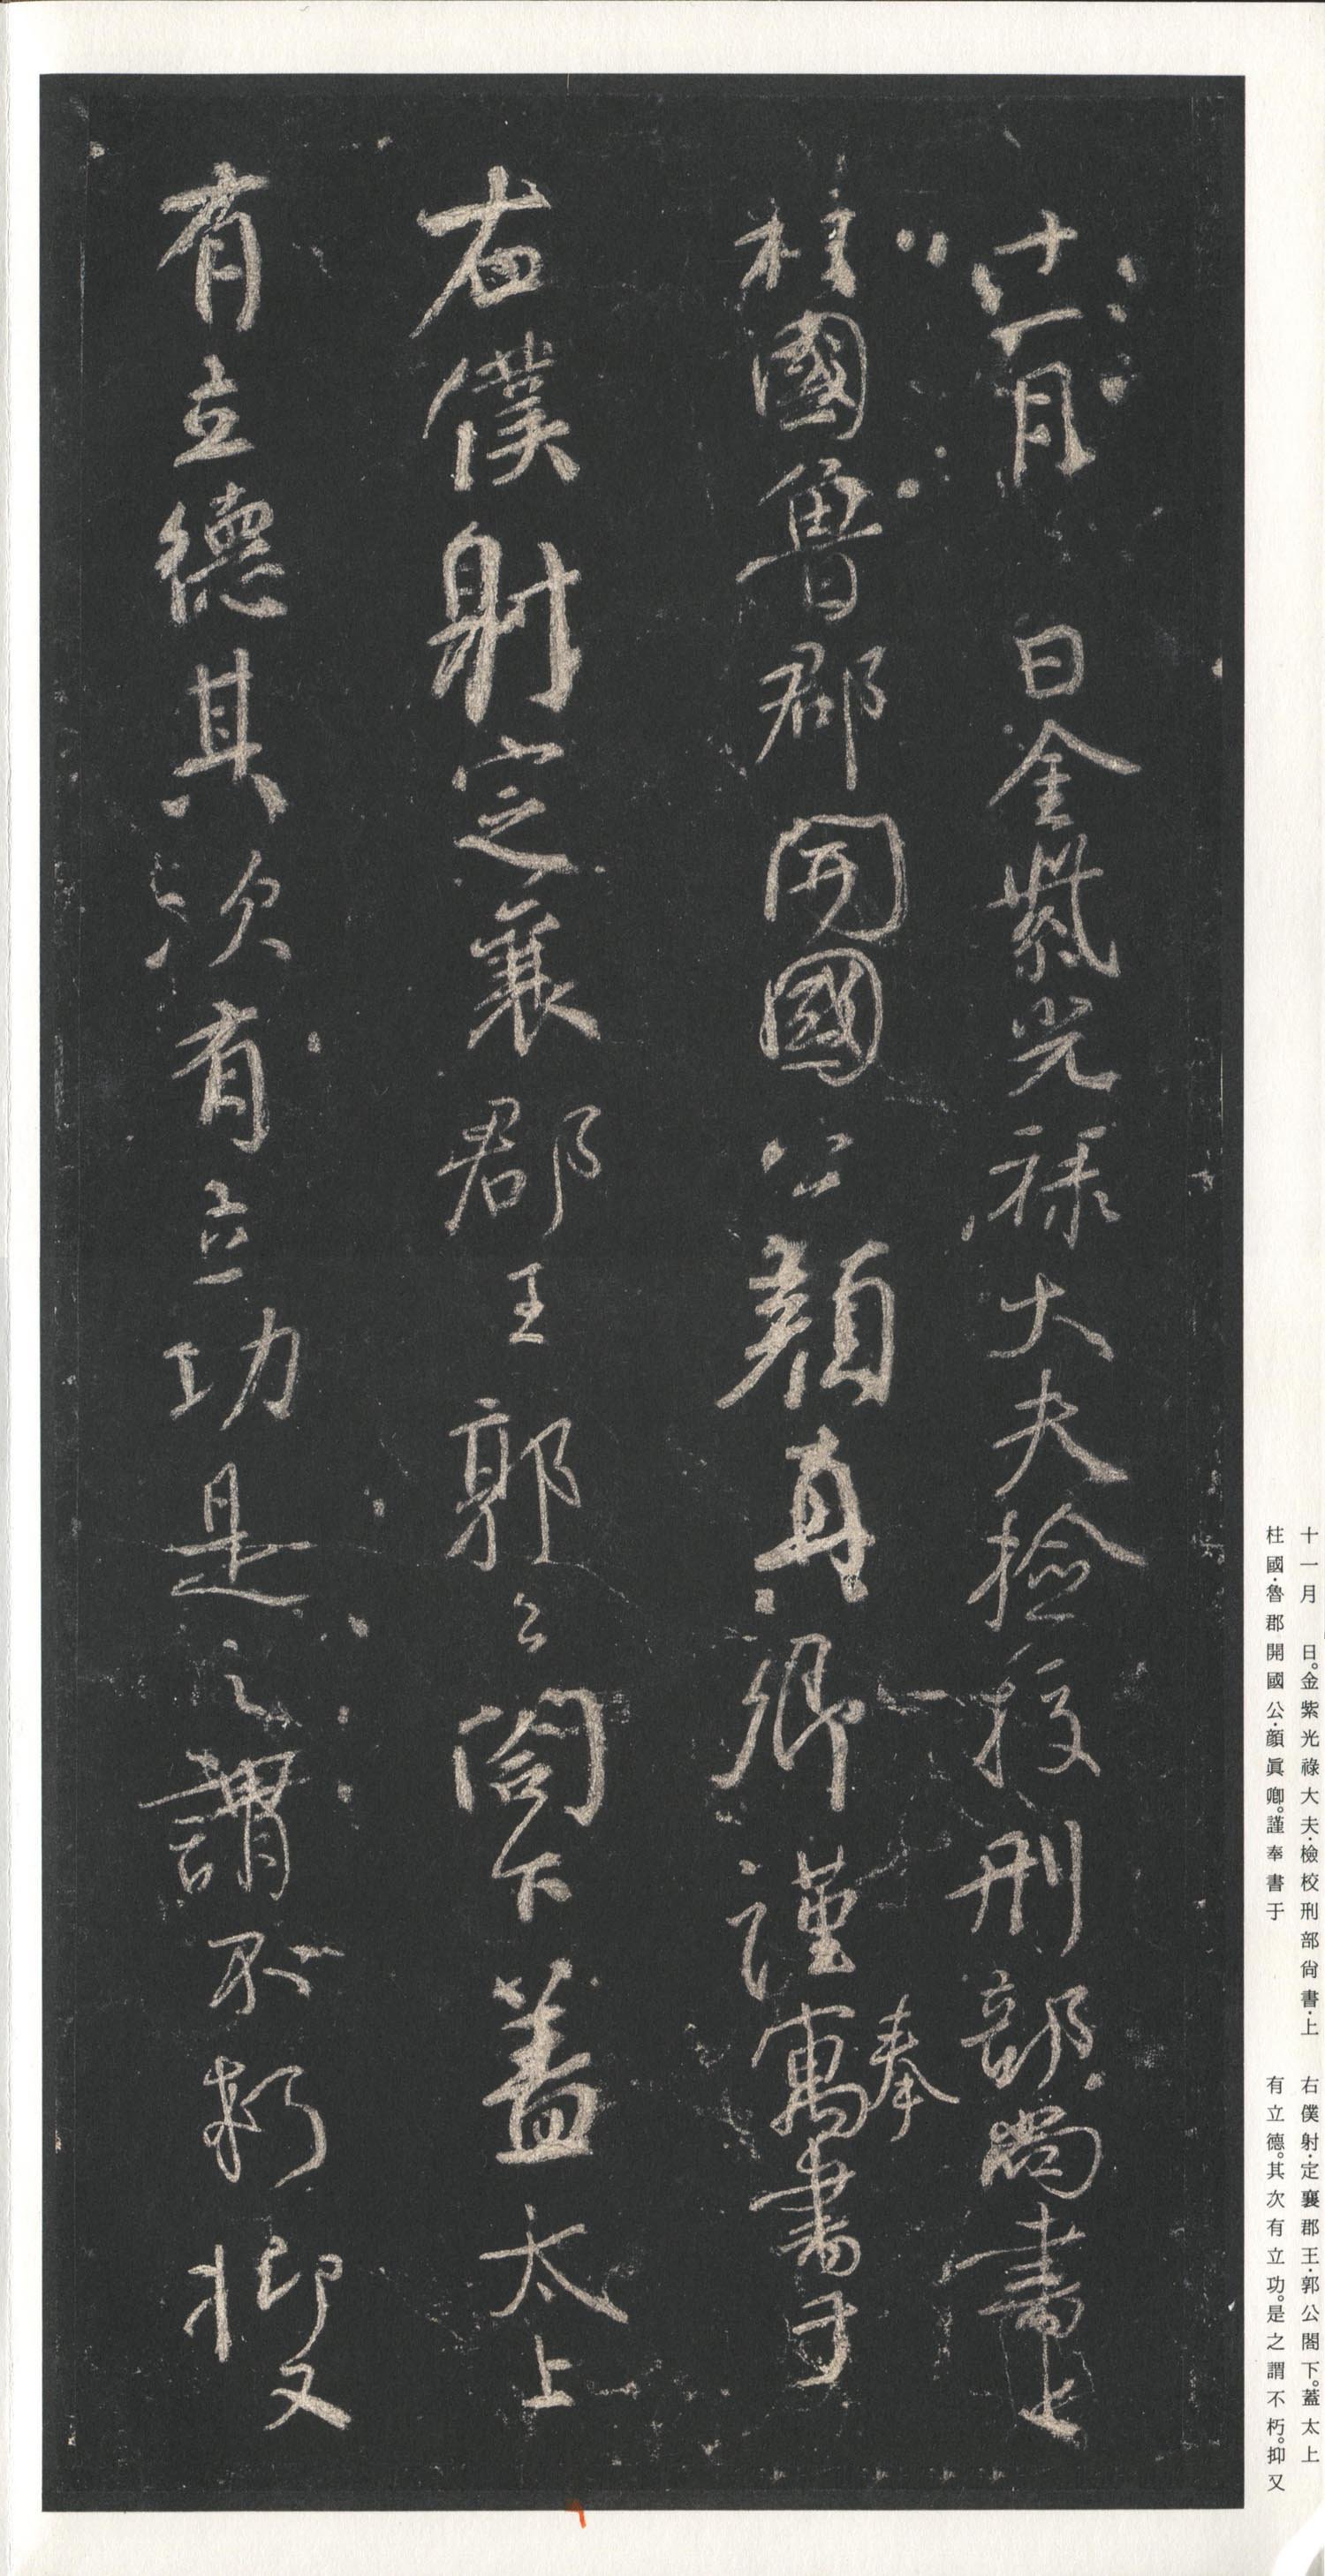 十一月　日金紫光祿大夫檢校刑部尚書上
柱國魯郡開國公顏真卿謹奉寓書于
右僕射定襄郡王郭公閤下蓋太上
有立德其次有立功是之謂不朽抑又
十一月　日。金紫光祿大夫·檢校刑部尙書·上
柱國·魯郡開國公·顔眞卿。謹奉書于
右僕射·定襄郡王·郭公閤下。蓋太上
有立德。其次有立功。是之謂不朽。抑又